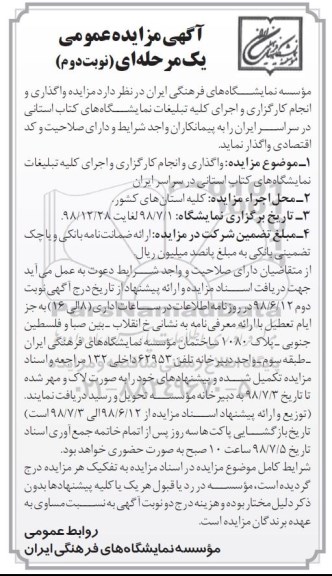 آگهی مزایده عمومی
یک مرحله‌ای (نوبت دوم)
مؤسسه نمایشگاه‌های فرهنگی ایران در نظر دارد مزایده واگذاری و
انجام کارگزاری و اجرای کلیه تبلیغات نمایشگاه‌های کتاب استانی
در سراسر ایران را به پیمانکاران واجد شرایط و دارای صلاحیت و کد
اقتصادی واگذار نماید.
۱ـ موضوع مزایده: واگذاری و انجام کارگزاری و اجرای کلیه تبلیغات
نمایشگاه‌های کتاب استانی در سراسر ایران
۲ـ محل اجراء مزایده: کلیه استان‌های کشور.
۳ـ تاریخ برگزاری نمایشگاه: ۹۸/۷/۱ لغایت ۹۸/۱۲/۲۸.
۴ـ مبلغ تضمین شرکت در مزایده: ارائه ضمانت‌نامه بانکی و یا چک
تضمینی بانکی به مبلغ پانصد میلیون ریال.
از متقاضیان دارای صلاحیت و واجد شرایط دعوت به عمل می‌آید
جهت دریافت اسناد مزایده و ارائه پیشنهاد از تاریخ درج آگهی نوبت
دوم ۹۸/۶/۱۲ در روزنامه اطلاعات در ساعات اداری (۸ الی ۱۶) به جز
ایام تعطیل با ارائه معرفی‌نامه به نشانی خ انقلاب ـ بین صبا و فلسطین
جنوبی ـ پلاک ۱۰۸۰ ساختمان مؤسسه نمایشگاه‌های فرهنگی ایران
ـ طبقه سوم ـ واحد دبیرخانه تلفن ۶۲۹۵۳ داخلی ۱۳۲ مراجعه و اسناد
مزایده تکمیل شده و پیشنهادهای خود را به صورت لاک و مهر شده
تا تاریخ ۹۸/۷/۳ به دبیرخانه مؤسسه تحویل و رسید دریافت نمایند.
(توزیع و ارائه پیشنهاد اسناد مزایده از ۹۸/۶/۱۲ الی ۹۸/۷/۳ است)
تاریخ بازگشایی پاکت‌ها سه روز پس از اتمام خاتمه جمع‌آوری اسناد
تاریخ ۹۸/۷/۵ ساعت ۱۰ صبح به صورت حضوری خواهد بود.
شرایط کامل موضوع مزایده در اسناد مزایده به تفکیک هر مزایده درج
گردیده است، مؤسسه در رد یا قبول هر یک یا کلیه پیشنهادها بدون
ذکر دلیل مختار بوده و هزینه درج دو نوبت آگهی به نسبت مساوی به
عهده برندگان مزایده است.
روابط عمومی
مؤسسه نمایشگاه‌های فرهنگی ایران